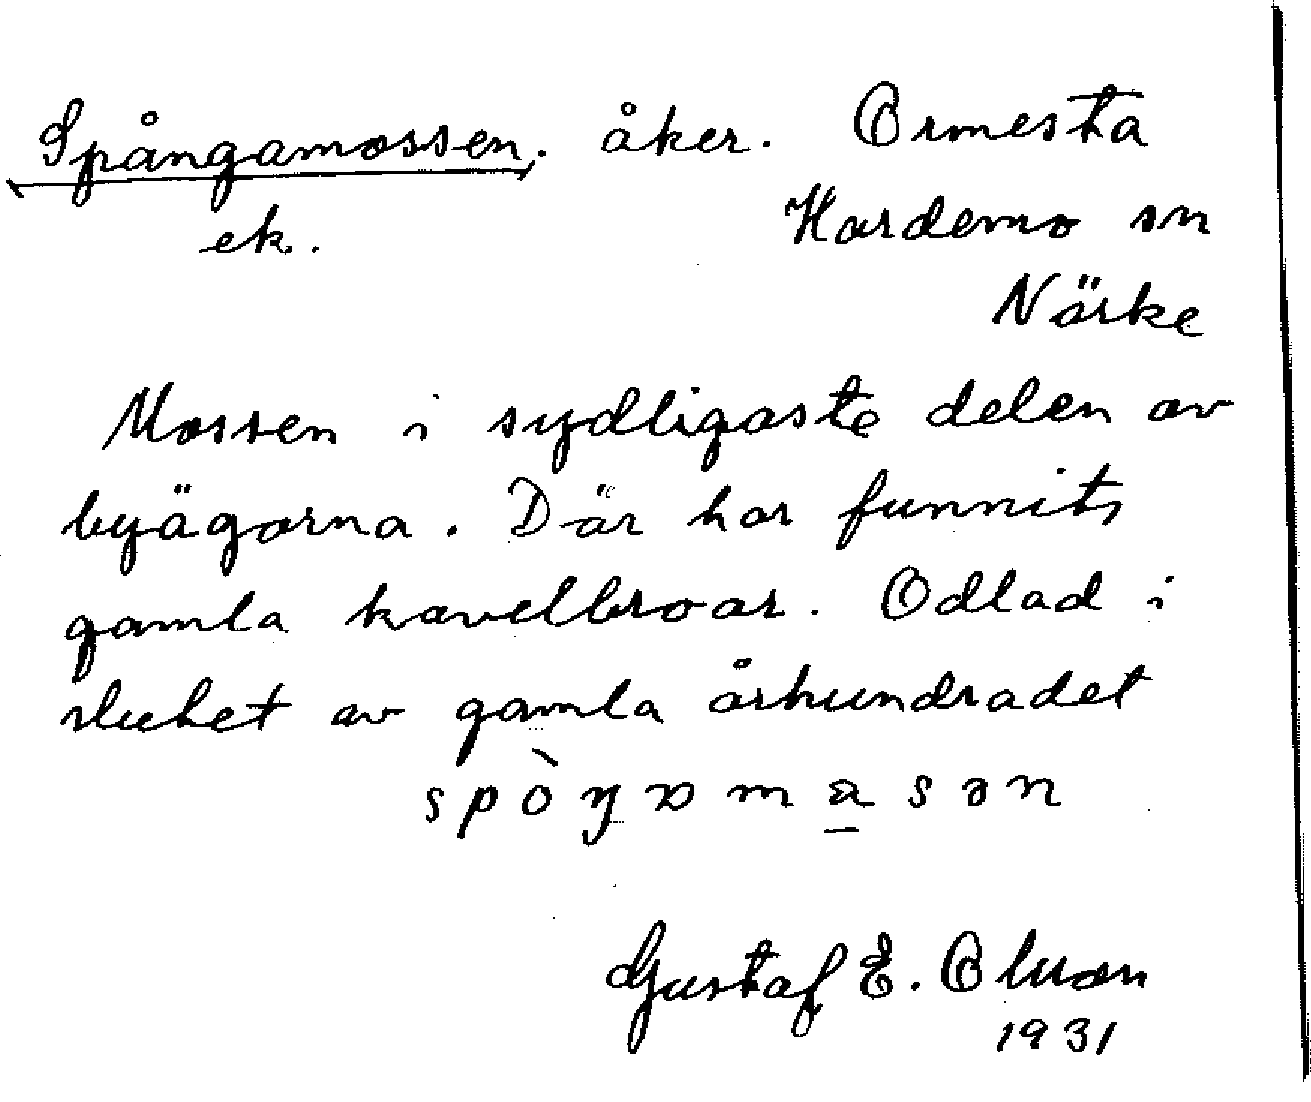 Spångamossen. åker. Ormesta
ek. Hardemo sn
Närke
Mossen i sydligaste delen av
byägorna. Där har funnits
gamla kavelbroar. Odlad i
slutet av gamla århundradet
Gustaf E. Olsson
1931